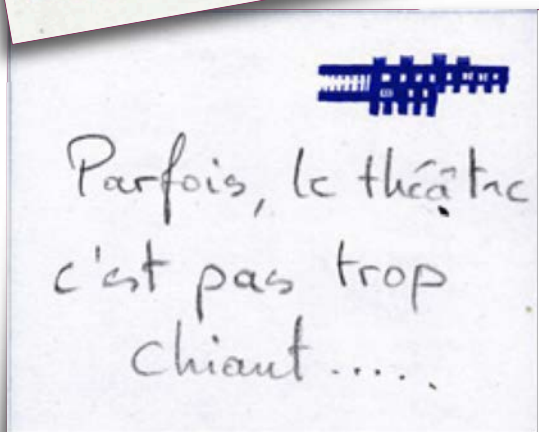 Parfois, le théâtre
c'est pas trop
chiant.....